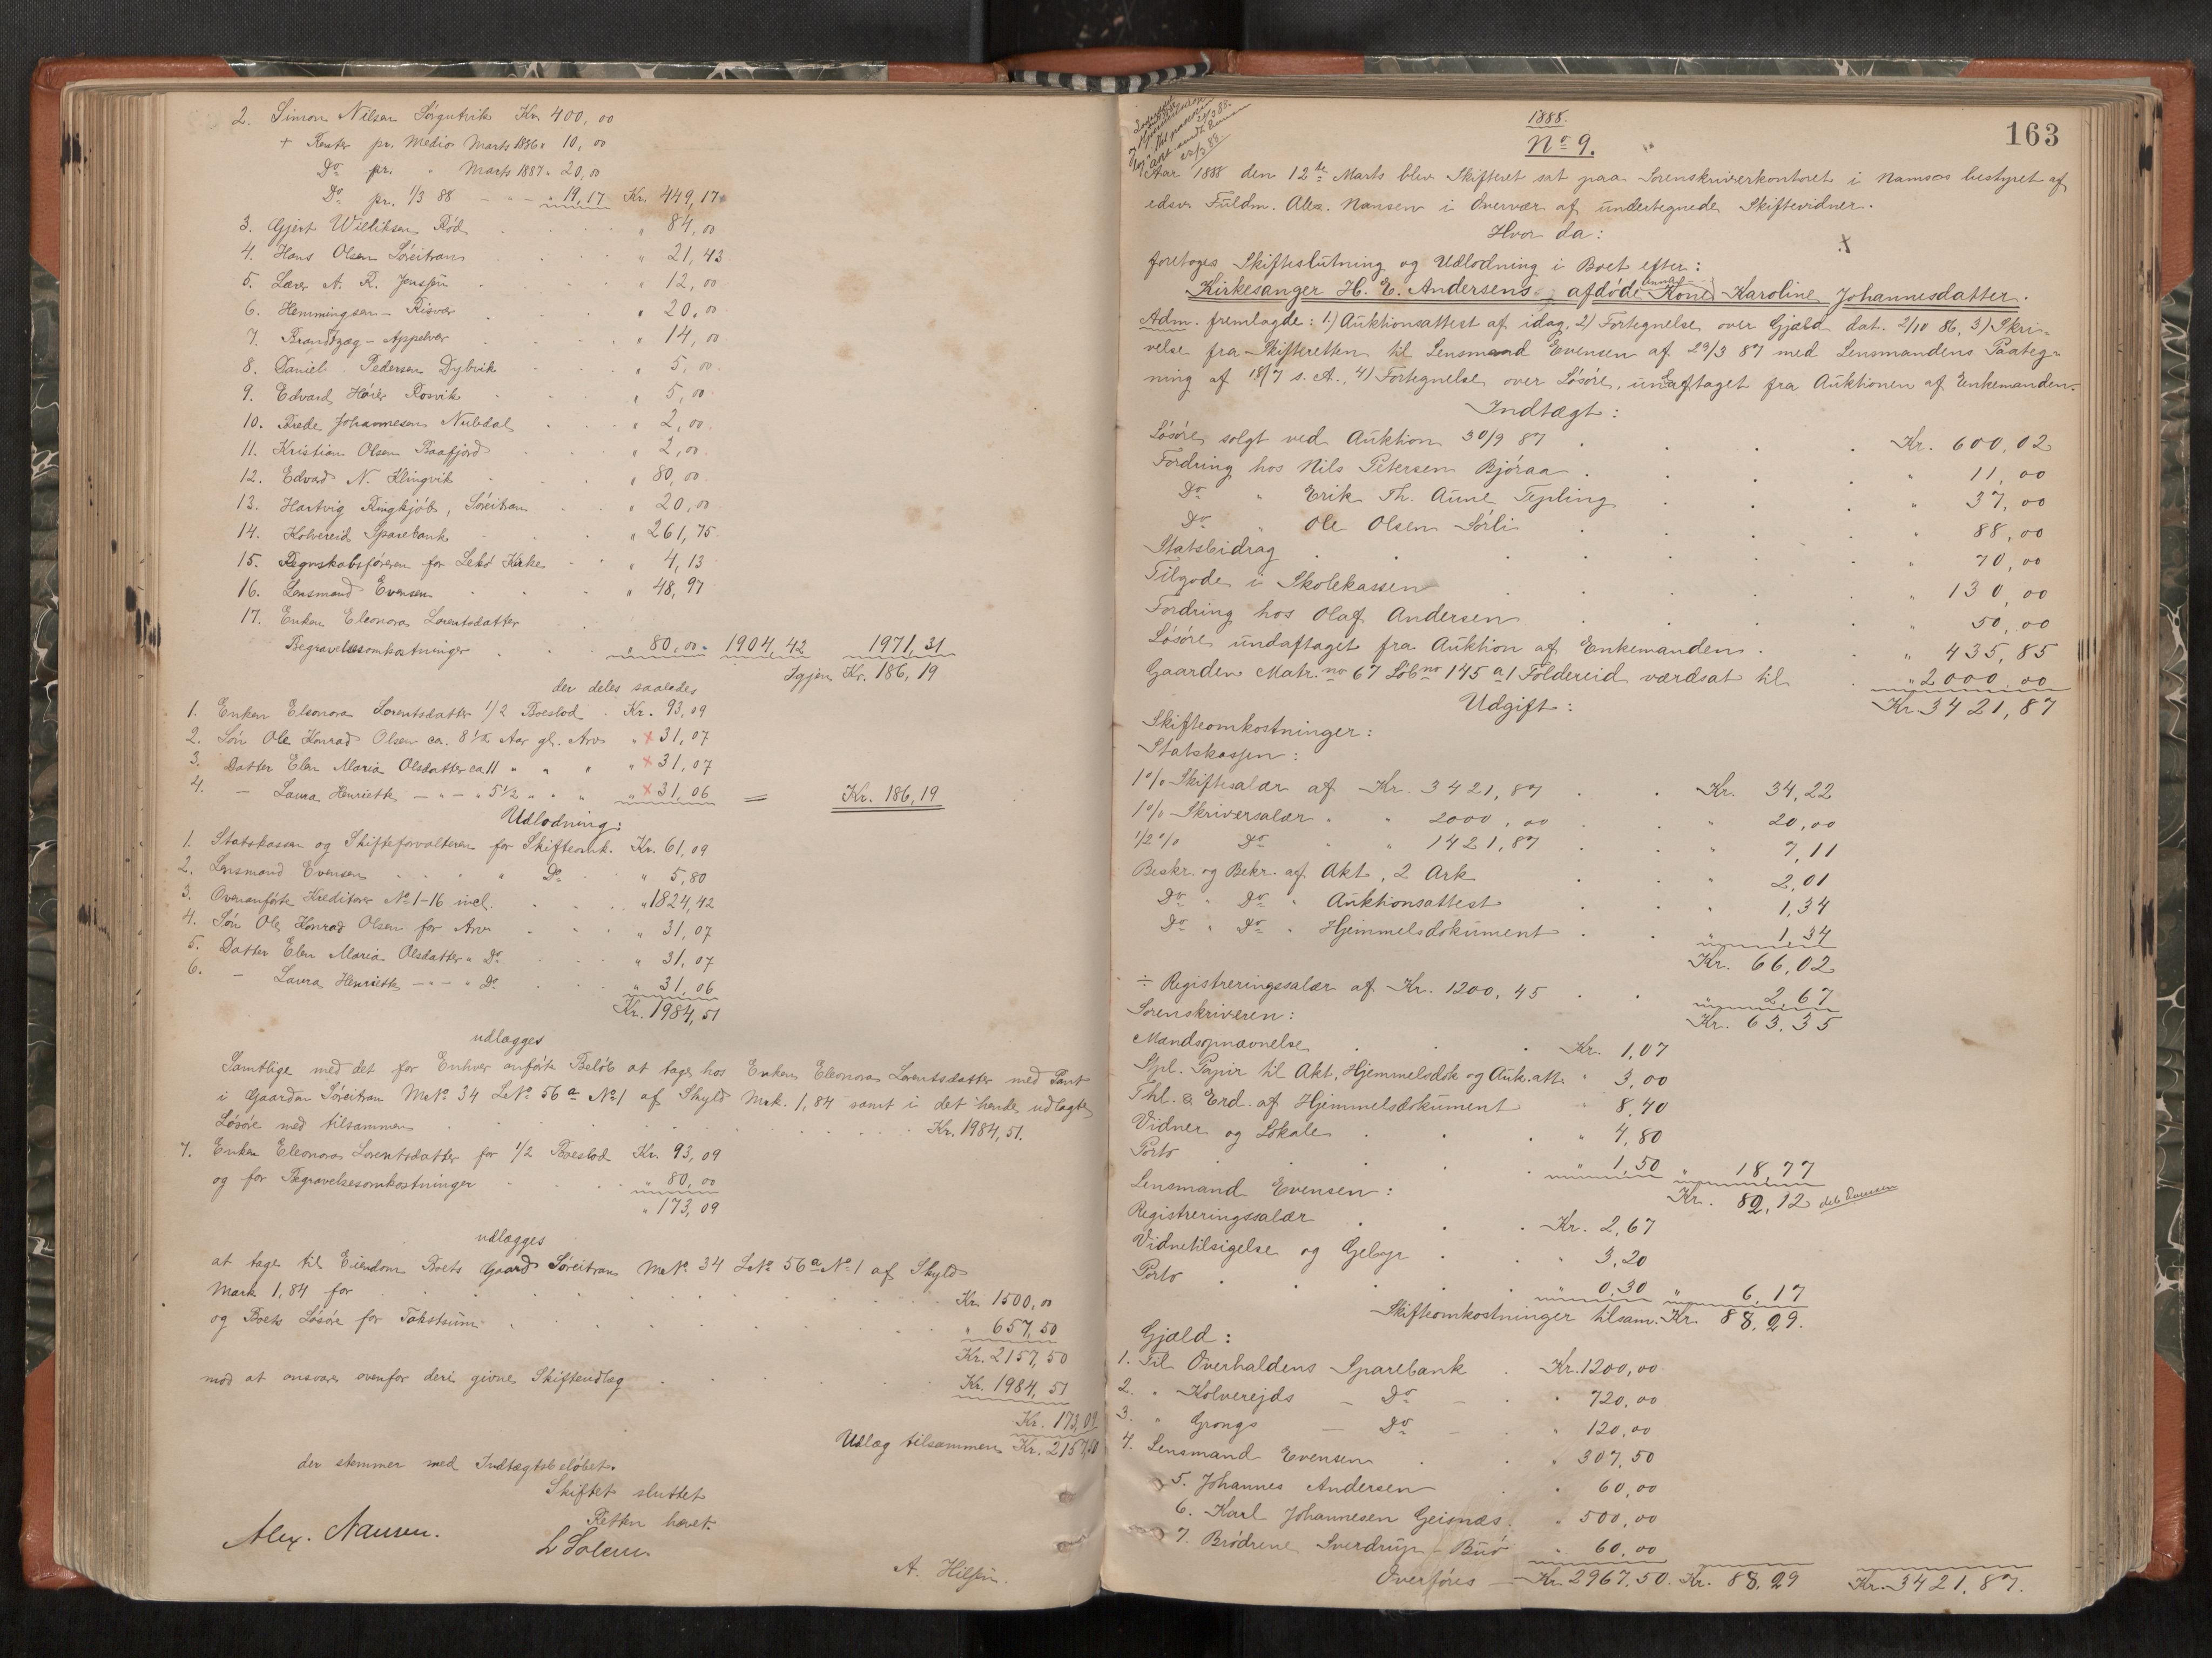 2. Simon Nilsen Sørgutvik Kr. 400,00
+ Renter pr. Medio Marts 1886 " 10,00
Do pr. " Marts 1887 " 20,00
Do pr. 1/3 88 - - " 19,17 Kr. 449,17
3. Gjert Williksen Rød " 84,00
4. Hans Olsen Søreitran " 21,43
5. Lærer A. R. Jenssen " 12,00
6. Hemmingsen - Risvær " 20,00
7. Brandtzæg - Appelvær " 14,00
8. Daniel Pedersen Dybvik " 5,00
9. Edvard Rosvik " 5,00
10. Johannesen Nubdal " 2,00
11. Kristian Olsen Raafjord " 2,00
12. Edvard N. Klingvik " 80,00
13. Hartvig Ringkjøb, Søreitran " 20,00
14. Kolvereid Sparebank " 261,75
15. Regnskabsføreren for Lekø Kirke " 4,13
16. Lensmand Evensen " 48,97
17. Enken Eleonora Lorentsdatter
Begravelsesomkostninger " 80,00 1904,42 1971,31
Igjen Kr. 186,19
der deles saaledes
1. Enken Eleonora Lorentsdatter 1/2 Boeslod Kr. 93,09
2. Søn Ole Konrad Olsen ca. 8 1/2 Aar gl. Arv " × 31,07
3. Datter Elen Maria Olsdatter ca 11 " " " " × 31,07
4. — Laura Henriette - " - " 5 1/2 " " " " × 31,06 = Kr. 186,19
Udlodning:
1. Statskassen og Skifteforvalteren for Skifteomk. Kr. 61,09
2. Lensmand Evensen " Do " 5,80
3. Ovenanførte Kreditorer No 1-16 incl. " 1824,42
4. Søn Ole Konrad Olsen for Arv " 31,07
5. Datter Elen Maria Olsdatter " Do " 31,07
6. — Laura Henriette - " - " Do " 31,06
Kr. 1984,51
udlægges
Samtlige med det for Enhver anførte Beløb at tage hos Enken Eleonora Lorentsdatter med Pant
i Gaarden Søreitran M.No 34 L.No 56a No 1 af Skyld Mrk. 1,84 samt i det hende udlagte
Løsøre med tilsammen Kr. 1984,51.
7. Enken Eleonora Lorentsdatter for 1/2 Boeslod Kr. 93,09
og for Begravelsesomkostninger " 80,00
" 173,09
udlægges
at tage til Eiendom Boets Gaard Søreitran M.No 34 L.No 56a No 1 af Skyld
Mark 1,84 for Kr. 1500,00
og Boets Løsøre for Takstsum " 657,50
Kr. 2157,50
mod at ansvare ovenfor deri givne Skifteudlæg Kr. 1984,51
Kr. 173,09
Udlæg tilsammen Kr. 2157,50
der stemmer med Indtægtsbeløbet.
Skiftet sluttet
Retten hævet.
Alex. Nansen. L Solem
A. Hilsen.
163
1888.
No 9.
Aar 1888 den 12te Marts blev Skifteret sat paa Sorenskriverkontoret i Namsos bestyret af
edsv. Fuldm. Alex. Nansen i Overvær af undertegnede Skiftevidner.
Hvor da:
foretoges Skifteslutning og Udlodning i Boet efter:
Kirkesanger H. E. Andersens afdøde Kone Karoline Johannesdatter.
Adm. fremlagde: 1.) Auktionsattest af idag, 2) Fortegnelse over Gjæld dat. 2/10 86, 3) Skri-
velse fra Skifteretten til Lensmand Evensen af 29/3 87 med Lensmandens Paateg-
ning af 18/7 s. A., 4) Fortegnelse over Løsøre, undtaget fra Auktionen af Enkemanden.
Indtægt:
Løsøre solgt ved Auktion 30/9 87 Kr. 600,02
Fordring hos Nils Petersen Bjøraa " 11,00
Do " Erik Th. Aune Tepling " 37,00
Do " Ole Olsen Sørli " 88,00
Statsbidrag " 70,00
Tilgode i Skolekassen " 130,00
Fordring hos Olaf Andersen " 50,00
Løsøre undaftaget fra Auktion af Enkemanden " 435,85
Gaarden Matr. no 67 Løb no 145 a1 Foldereid værdsat til " 2000,00
Kr. 3421,87
Udgift:
Skifteomkostninger:
Statskassen:
1% Skiftesalær af Kr. 3421,87 Kr. 34,22
1% Skriversalær " " 2000,00 " 20,00
1/2 % Do " " 1421,87 " 7,11
Beskr. og Bekr. af Akt, 2 Ark " 2,01
Do " Do " Auktionsattest " 1,34
Do " Do " Hjemmelsdokument " 1,34
Kr. 66,02
÷ Registreringssalær af Kr. 1200,45 " 2,67
Kr. 63,35
Sorenskriveren:
Mandsopnævnelse Kr. 1,07
Stpl. Papir til Akt, Hjemmelsdok og Auk. att. " 3,00
Thl. & Erd. af Hjemmelsdokument " 8,40
Vidner og Lokale " 4,80
Porto " 1,50 " 18,77
Kr. 82,12
Lensmand Evensen:
Registreringssalær Kr. 2,67
Vidnetilsigelse og Gebyr " 3,20
Porto " 0,30 " 6,17
Skifteomkostninger tilsam. Kr. 88,29.
Gjæld:
1. Til Overhaldens Sparebank Kr. 1200,00
2. " Kolverejds - Do - " 720,00
3. " Grongs — Do - " 120,00
4. Lensmand Evensen " 307,50
5. Johannes Andersen " 60,00
6. Karl Johannesen Geisnæs " 500,00
7. Brødrene Sverdrup - Buø " 60,00
Overføres — Kr. 2967,50. Kr. 88,29 Kr. 3421,87.